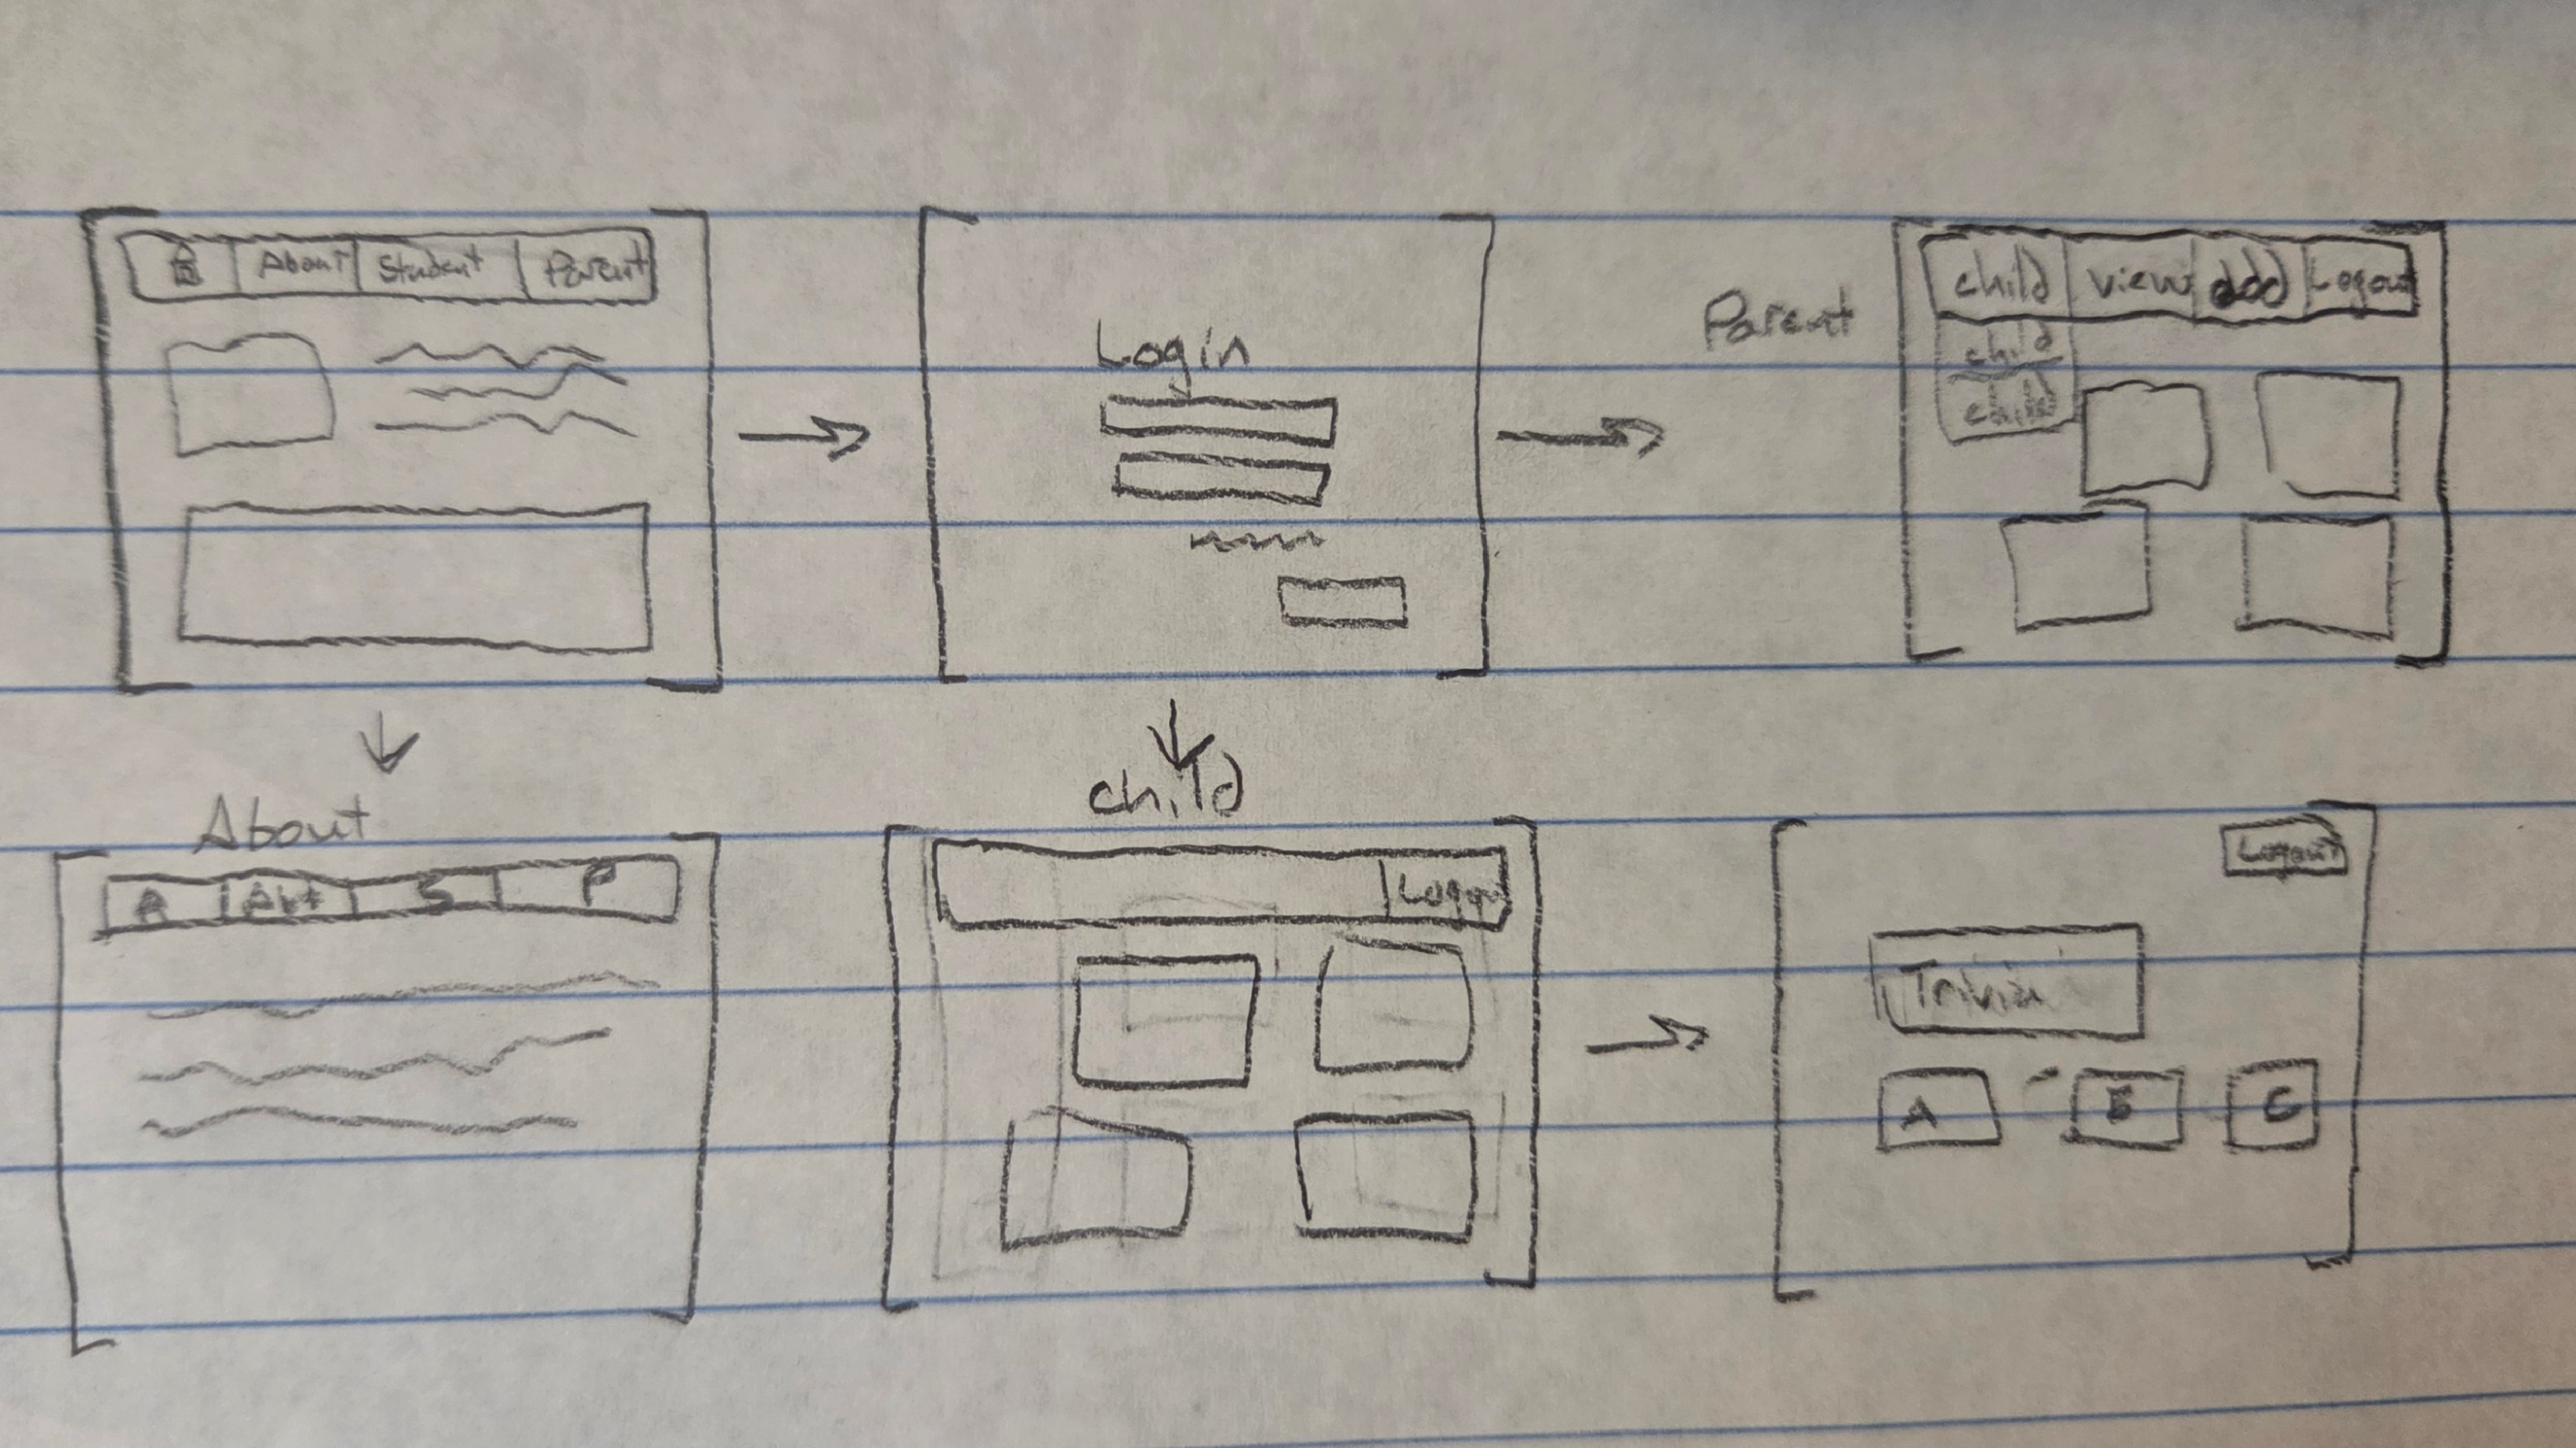 About Student Parent
Login
Parent
child view add Logout
child
child
About
Abt S P
child
Logout
Logout
Trivia
A B C